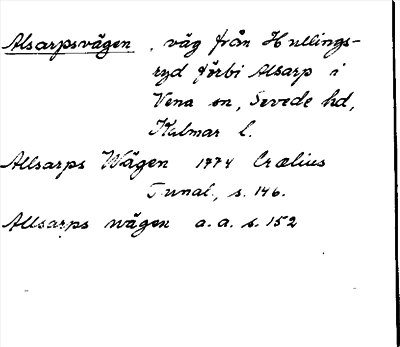 Alsarpsvägen, väg från Hullings-
ryd förbi Alsarp i
Vena sn, Sevede hd,
Kalmar l.
Allsarps Wägen 1774 Crælius
Tunal., s. 146.
Allsarps wägen a. a. s. 152